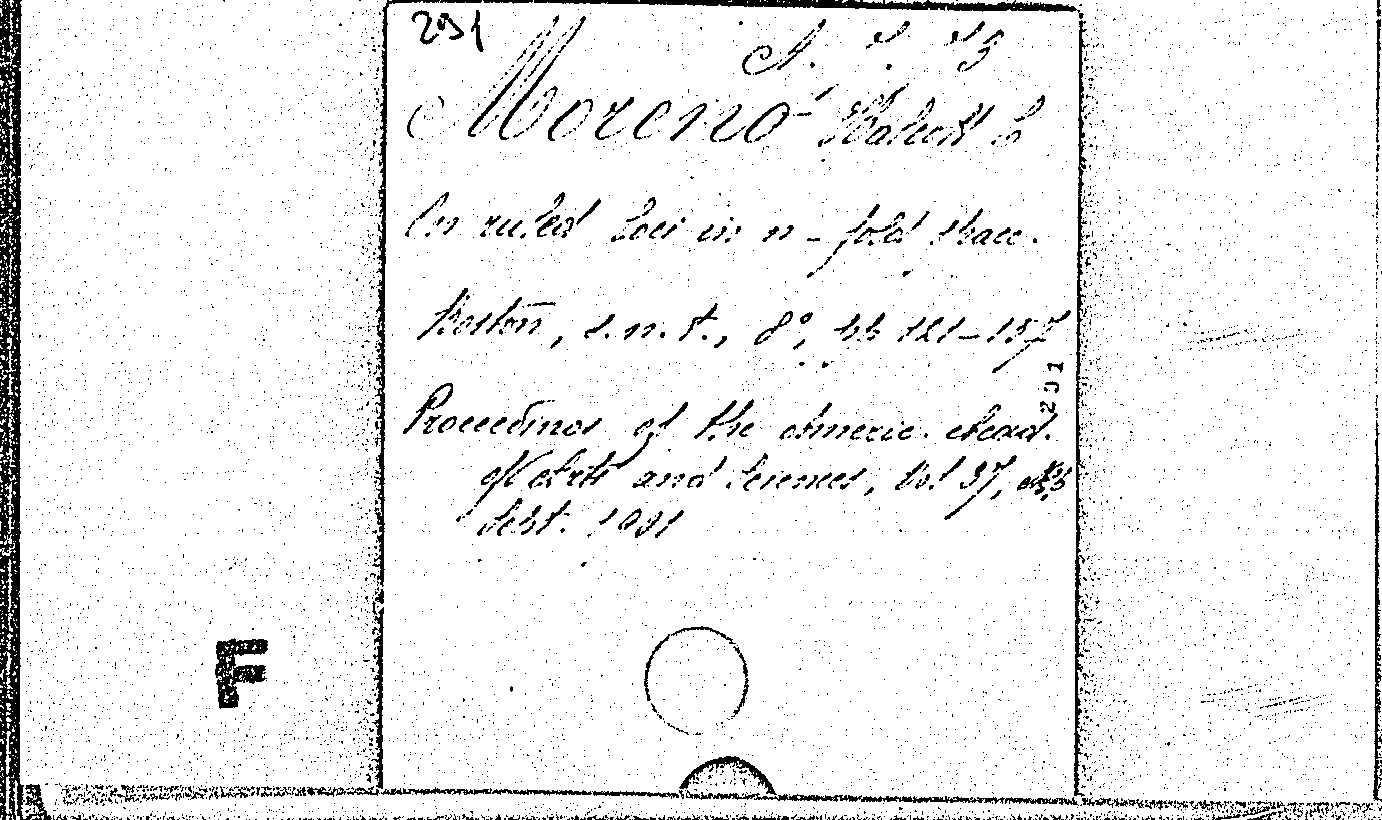 291
Moreno Halcott C
On ruled loci in n - fold space.
Boston, s.n.t., 8°, pp 121-157
291
Proceedings of the Americ. Acad.
of Arts and Sciences, Vol 37,
Sept. 1901
F